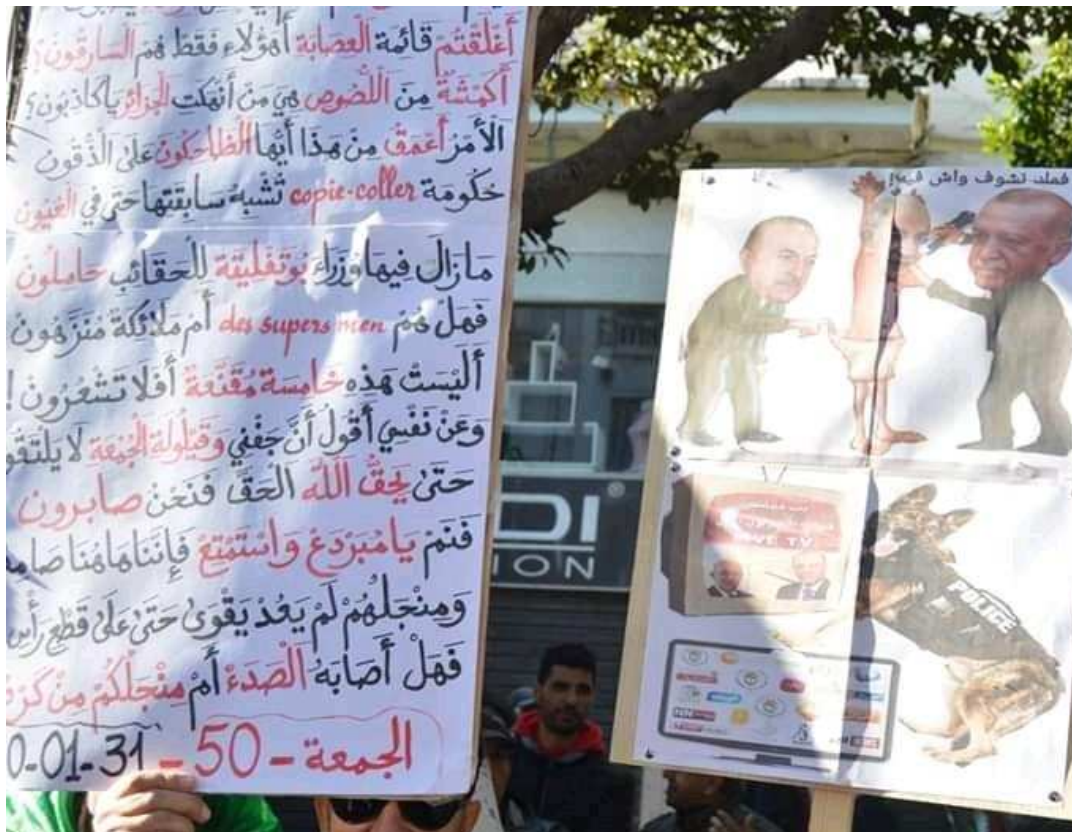 أَغْلَقْتُمْ قائِمة الْعِصَابة أَهؤُلاءِ فقط هُمْ السارقون؟
أَكَمْشَةٌ مِنَ اللُّصُوصِ هِيَ مَنْ أَنْهَكَتِ الجزائر يا كاذبون؟
الأَمْرُ أَعْمَقُ مِنْ هَذا أَيُّهَا الضَّاحِكُونَ عَلَى الذُّقُونْ
حَكُومَة copie-coller تُشْبِهُ سابِقتها حَتى في العُيُونْ
مَازَالَ فِيهَا وُزَراءٌ بُوتَفْلِيقَة لِلْحَقائب حَامِلُونْ
فَهَلْ هُمْ des supers men أَمْ مَلَائِكَةٌ مُنَزَّهُونْ
أَلَيْسَتْ هَذِهِ خامِسة مُقَنَّعَة أَفَلَا تَشْعُرُونْ !
وَعَنْ نَفْسِي أَقُولُ أَنَّ جَفْنِي وَقَيْلُولَة الْجُمْعَةِ لا
حَتَّى يُحِقَّ اللَّه الْحَقَّ فَنَحْنُ صابِرون
فَنَمْ يا مُبَرْدَعْ وَاسْتَمْتِعْ فَإِنَّنَا هَا هُنَا
وَمِنْجَلُهُمْ لَمْ يَعُدْ يَقْوَى حَتَى عَلَى قَطْعِ رَأْسِ
فَهَلْ أَصَابَهُ الْصَدَءْ أَمْ مِنْجَلُكُمْ مِنْ
الجمعة - 50 - 0-01-31
تشوف واش
VE T.V
POLICE
DI ®
ION